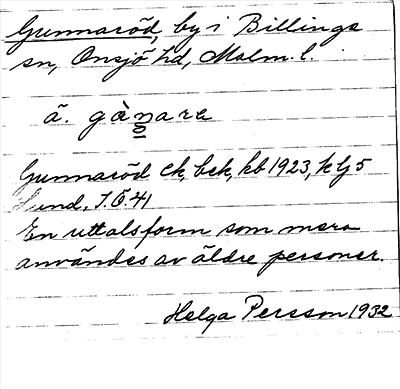 Gunnaröd, by i Billinge
sn, Onsjö hd, Malm. l.
ä. gànara
Gunnaröd ek, bek, kb 1923, klj 5
Lund. I. Ö 41
En uttalsform som mera
användes av äldre personer.
Helga Persson 1932